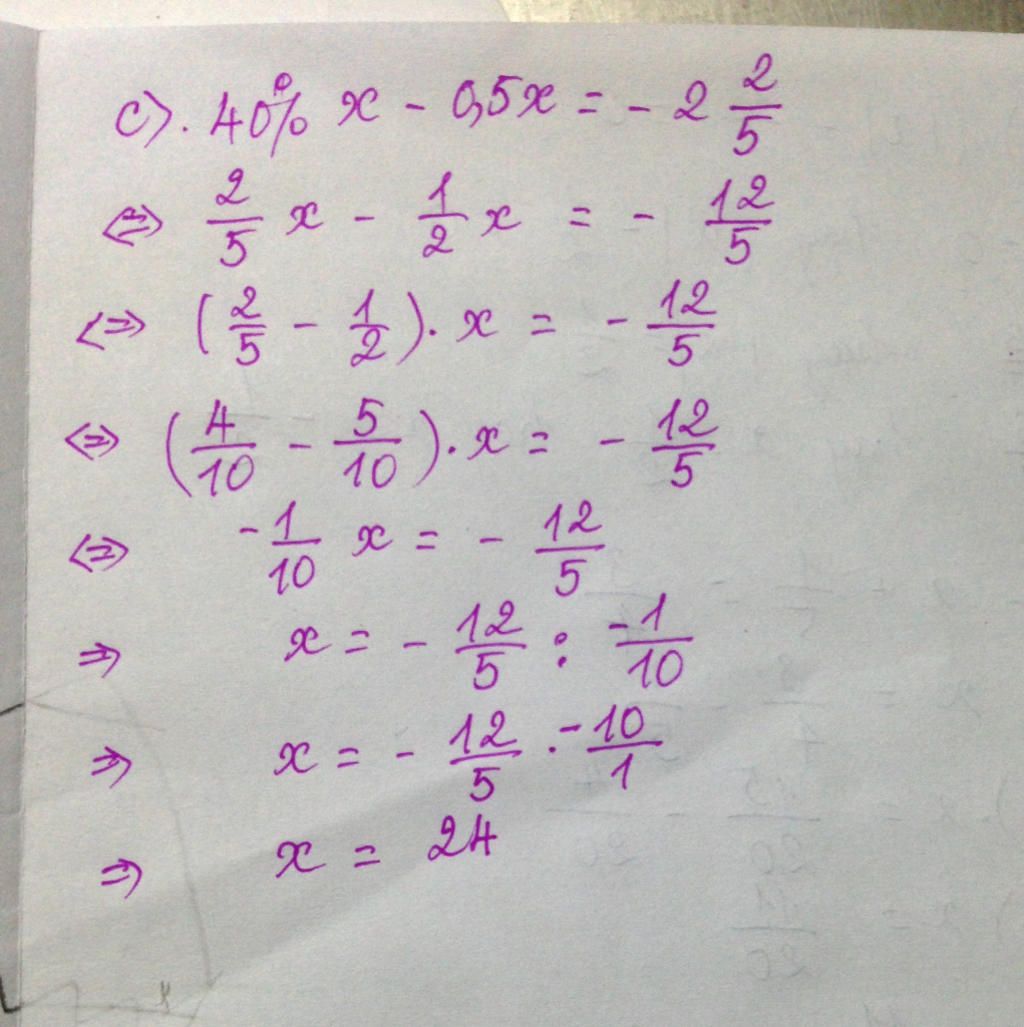 c). 40% x - 0,5x = - 2 2/5
<=> 2/5 x - 1/2 x = - 12/5
<=> (2/5 - 1/2).x = - 12/5
<=> (4/10 - 5/10).x = - 12/5
<=> -1/10 x = - 12/5
=> x = - 12/5 : -1/10
=> x = - 12/5 . -10/1
=> x = 24